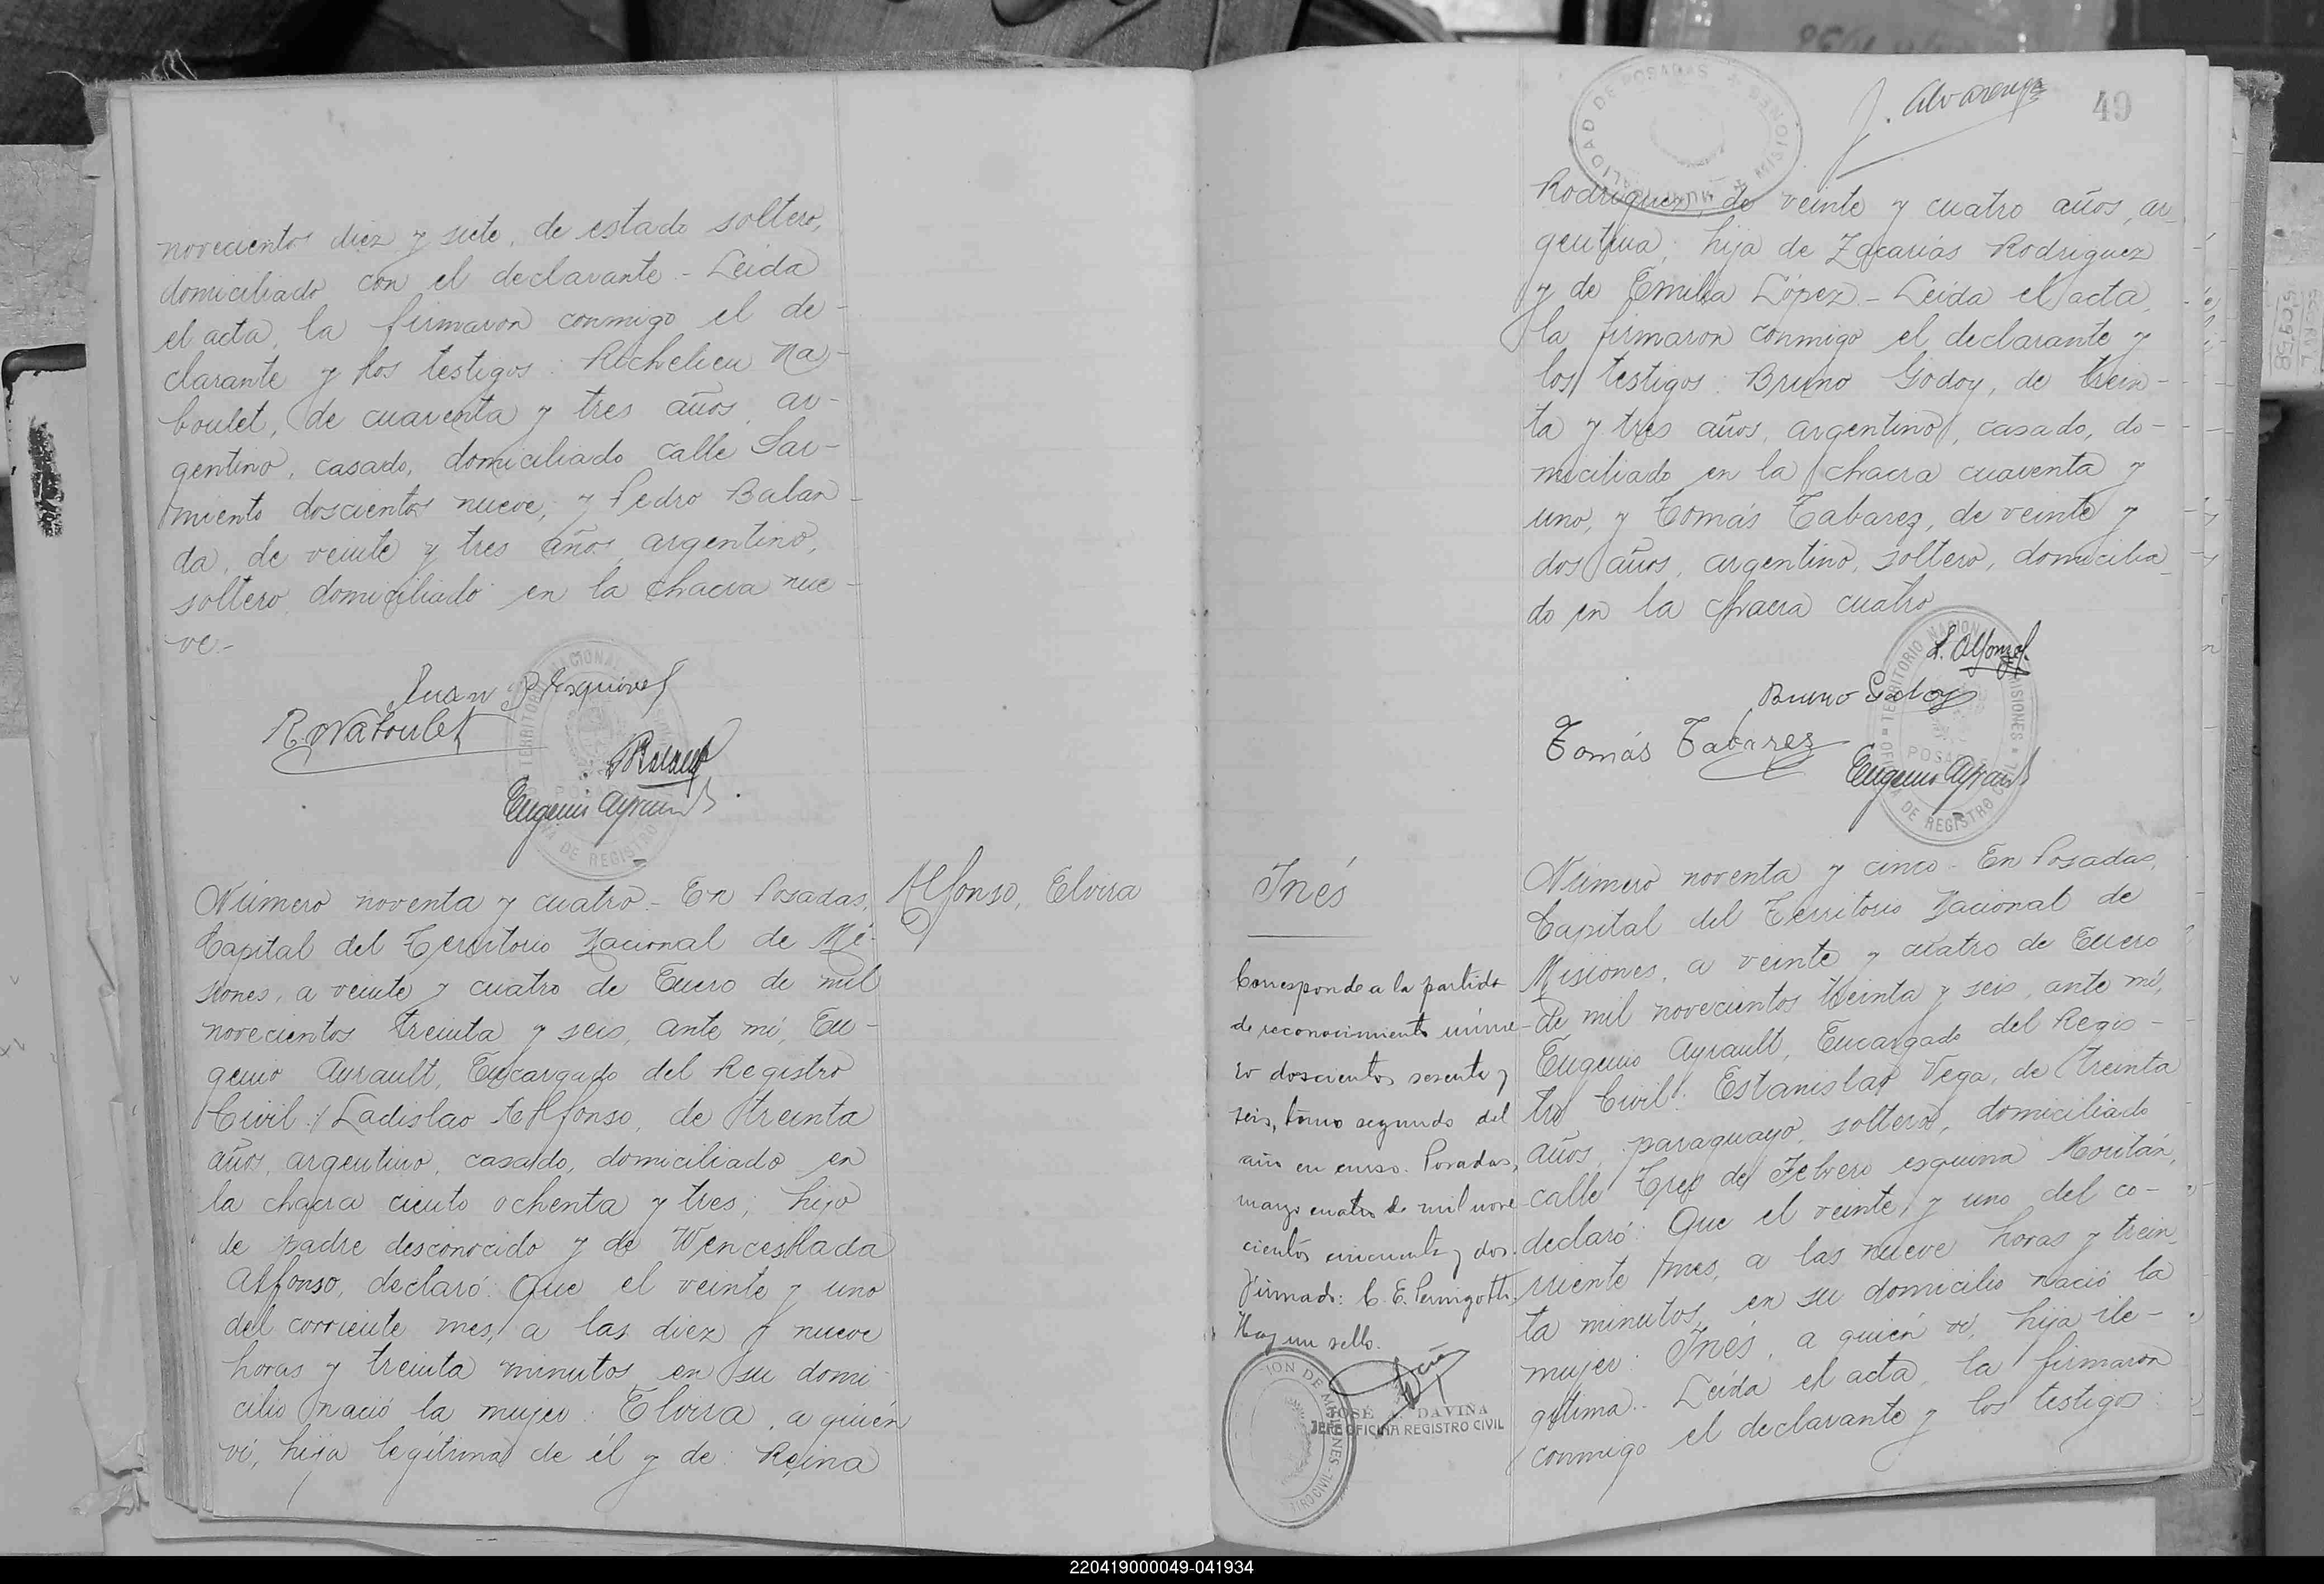 novecientos diez y siete, de estado soltero,
domiciliado con el declarante - Leida
el acta, la firmaron conmigo el de-
clarante y los testigos: Richelieu Na-
boulet, de cuarenta y tres años, ar-
gentino, casado, domiciliado calle Sar-
miento doscientos nueve, y Pedro Balan-
da, de veinte y tres años, argentino,
soltero, domiciliado en la chacra nue-
ve.-
Juan J. Esquivel
R. Naboulet
Eugenio Ayrault
Número noventa y cuatro - En Posadas,
Capital del Territorio Nacional de Mi-
siones, a veinte y cuatro de Enero de mil
novecientos treinta y seis, ante mí, Eu-
genio Ayrault, Encargado del Registro
Civil: Ladislao Alfonso, de treinta
años, argentino, casado, domiciliado en
la chacra ciento ochenta y tres, hijo
de padre desconocido y de Wenceslada
Alfonso, declaró: Que el veinte y uno
del corriente mes, a las diez y nueve
horas y treinta minutos, en su domi-
cilio nació la mujer: Elvira, a quién
ví, hija legítima de él y de: Reina
Alfonso, Elvira
J. Alvarenga
49
MUNICIPALIDAD DE POSADAS MISIONES
Rodriguez, de veinte y cuatro años, ar-
gentina, hija de Zacarías Rodriguez
y de Emilia López - Leida el acta,
la firmaron conmigo el declarante y
los testigos: Bruno Godoy, de trein-
ta y tres años, argentino, casado, do-
miciliado en la chacra cuarenta y
uno, y Tomás Tabarez, de veinte y
dos años, argentino, soltero, domicilia-
do en la chacra cuatro
L. Alfonso
Bruno Godoy
Tomás Tabarez
Eugenio Ayrault
Inés
Corresponde a la partida
de reconocimiento núme-
ro doscientos sesenta y
seis, tomo segundo del
año en curso. Posadas,
marzo cuatro de mil nove-
cientos cincuenta y dos.
Firmado: C. E. Pernigotti.
Hay un sello.
JOSÉ DAVIÑA
JEFE OFICINA REGISTRO CIVIL
Número noventa y cinco - En Posadas,
Capital del Territorio Nacional de
Misiones, a veinte y cuatro de Enero
de mil novecientos treinta y seis, ante mí,
Eugenio Ayrault, Encargado del Regis-
tro Civil: Estanislao Vega, de treinta
años, paraguayo, soltero, domiciliado
calle Tres de Febrero esquina Roritán,
declaró: Que el veinte y uno del co-
rriente mes, a las nueve horas y trein-
ta minutos, en su domicilio nació la
mujer: Inés, a quién ví, hija ile-
gítima.. Leida el acta, la firmaron
conmigo el declarante y los testigos:
220419000049-041934